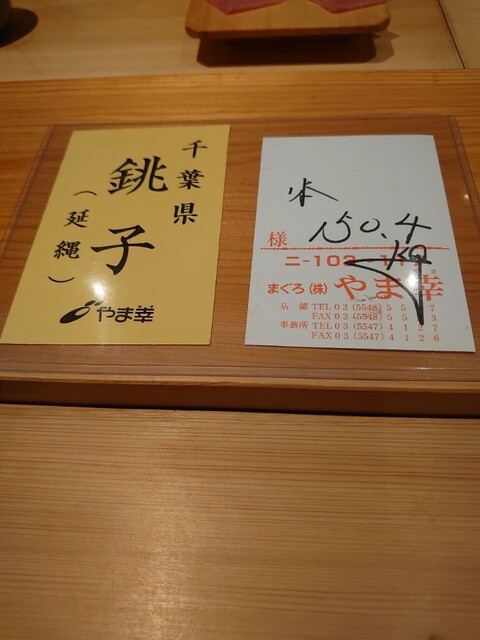 千葉県
銚子
(延縄)
やま幸
150.4
kg
様
ニ-103
まぐろ(株)やま幸
店舗 TEL 03 (5548) 5 5 7
FAX 03 (5548) 5 5 3
事務所 TEL 03 (5547) 4 1 2 7
FAX 03 (5547) 4 1 2 6